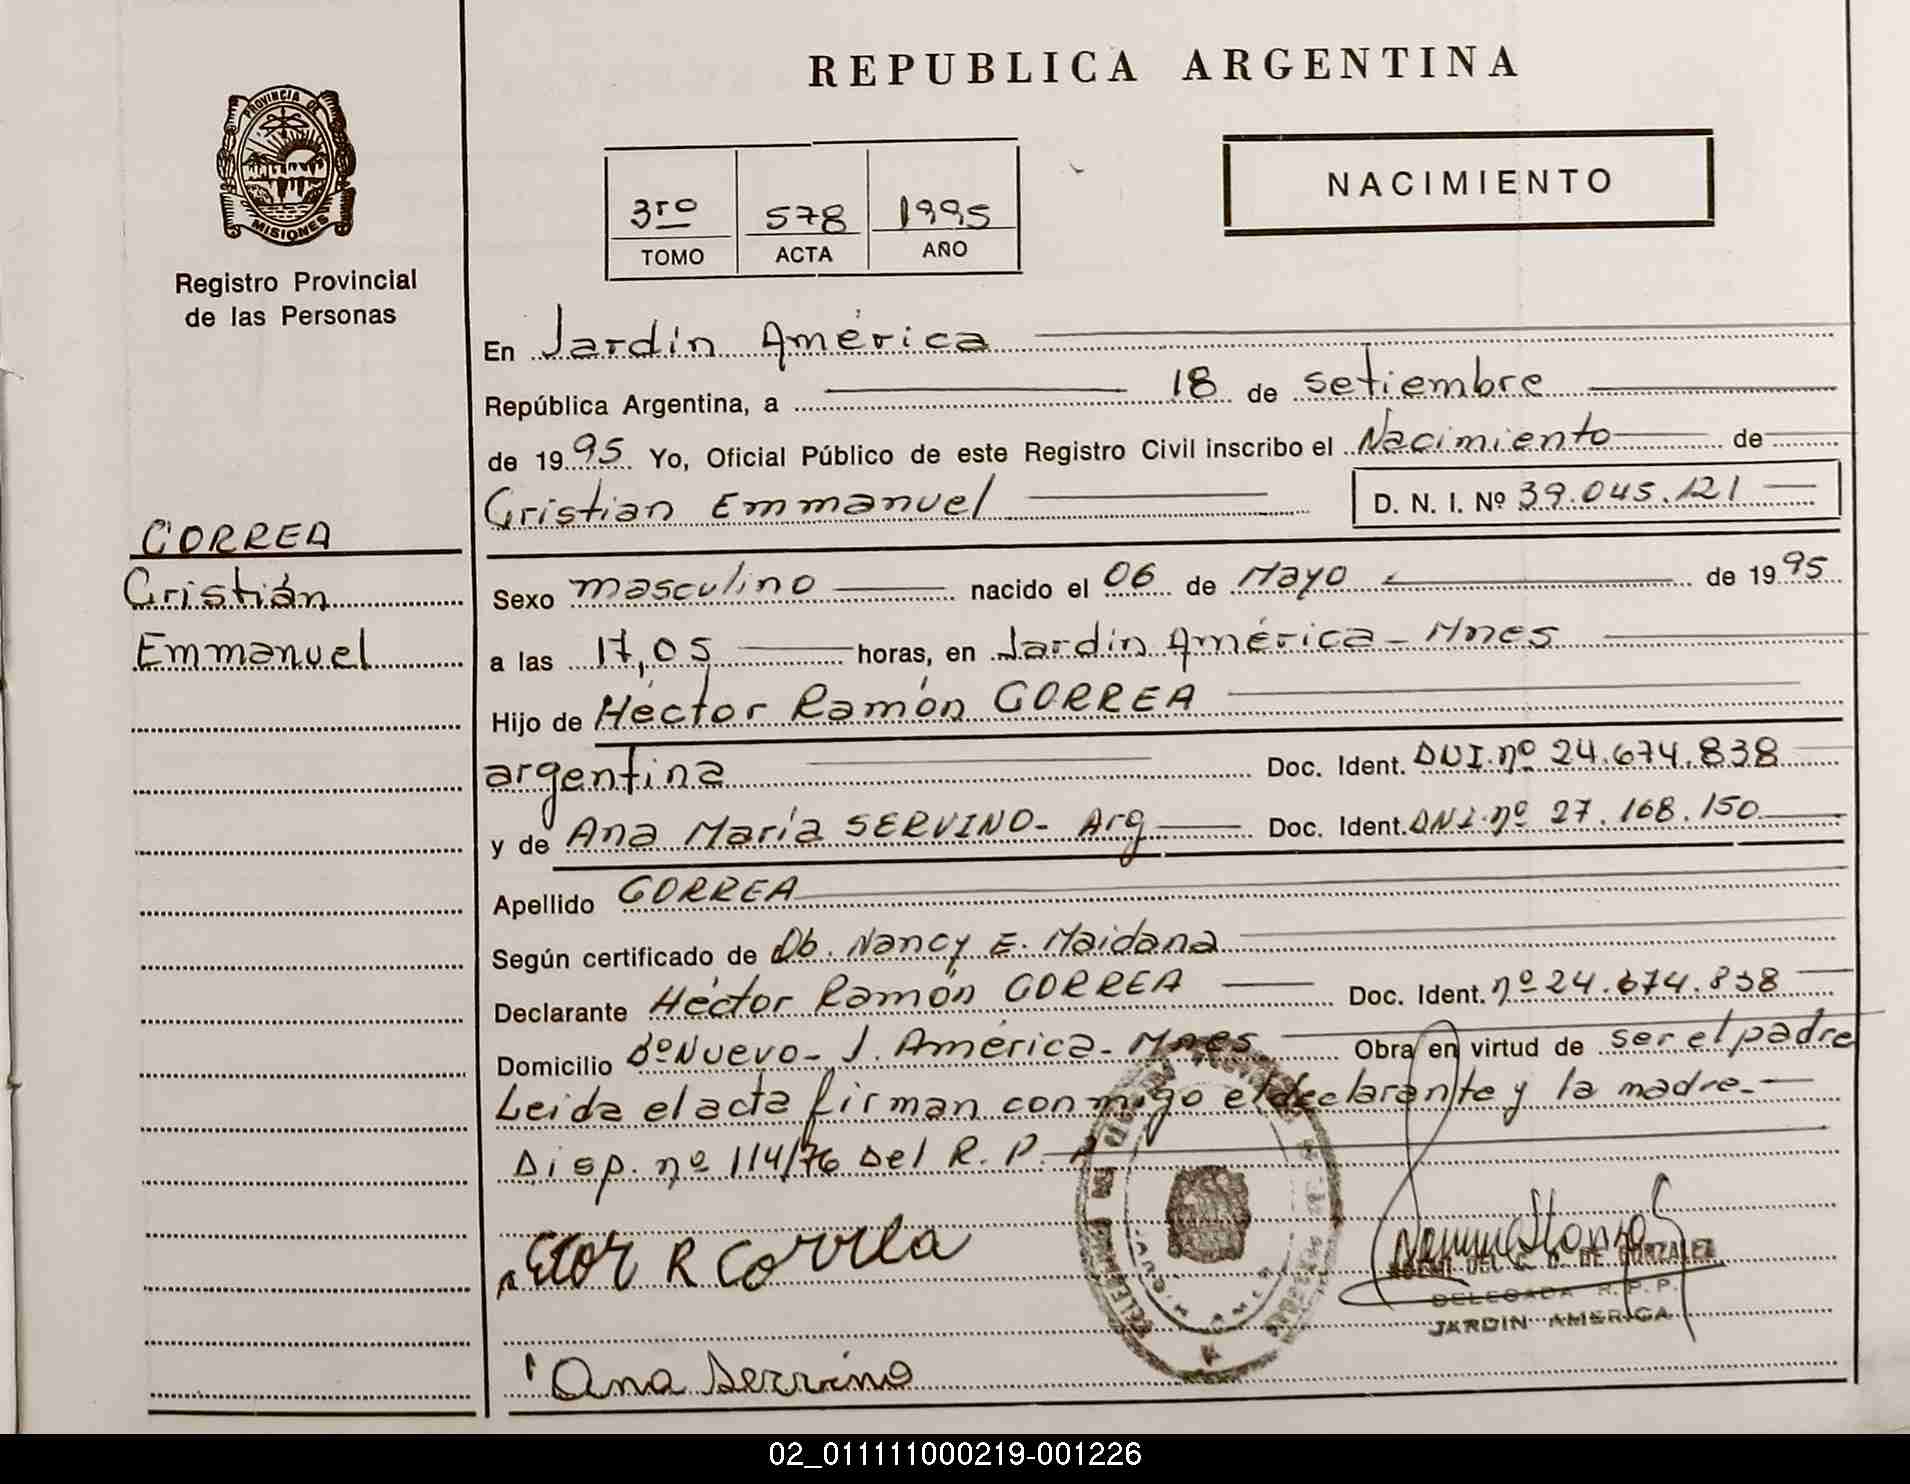 REPUBLICA ARGENTINA
PROVINCIA DE
MISIONES
Registro Provincial
de las Personas
NACIMIENTO
3ro 578 1995
TOMO ACTA AÑO
En Jardín América
República Argentina, a 18 de setiembre
de 1995 Yo, Oficial Público de este Registro Civil inscribo el Nacimiento de
Cristian Emmanuel D. N. I. Nº 39.045.121
CORREA
Cristián
Emmanuel
Sexo masculino nacido el 06 de Mayo de 1995
a las 17,05 horas, en Jardín América - Mnes
Hijo de Héctor Ramón CORREA
argentina Doc. Ident. DNI. nº 24.674.838
y de Ana María SERVINO - Arg Doc. Ident. DNI. nº 27.168.150
Apellido CORREA
Según certificado de Ob. Nancy E. Maidana
Declarante Héctor Ramón CORREA Doc. Ident. nº 24.674.838
Domicilio Bº Nuevo - J. América - Mnes. Obra en virtud de ser el padre
Leida el acta firman conmigo el declarante y la madre.-
Disp. nº 114/76 Del R. P.
R Correa
DE GONZALEZ
DELEGADA R.P.P.
JARDIN AMERICA
Ana Servino
02_011111000219-001226